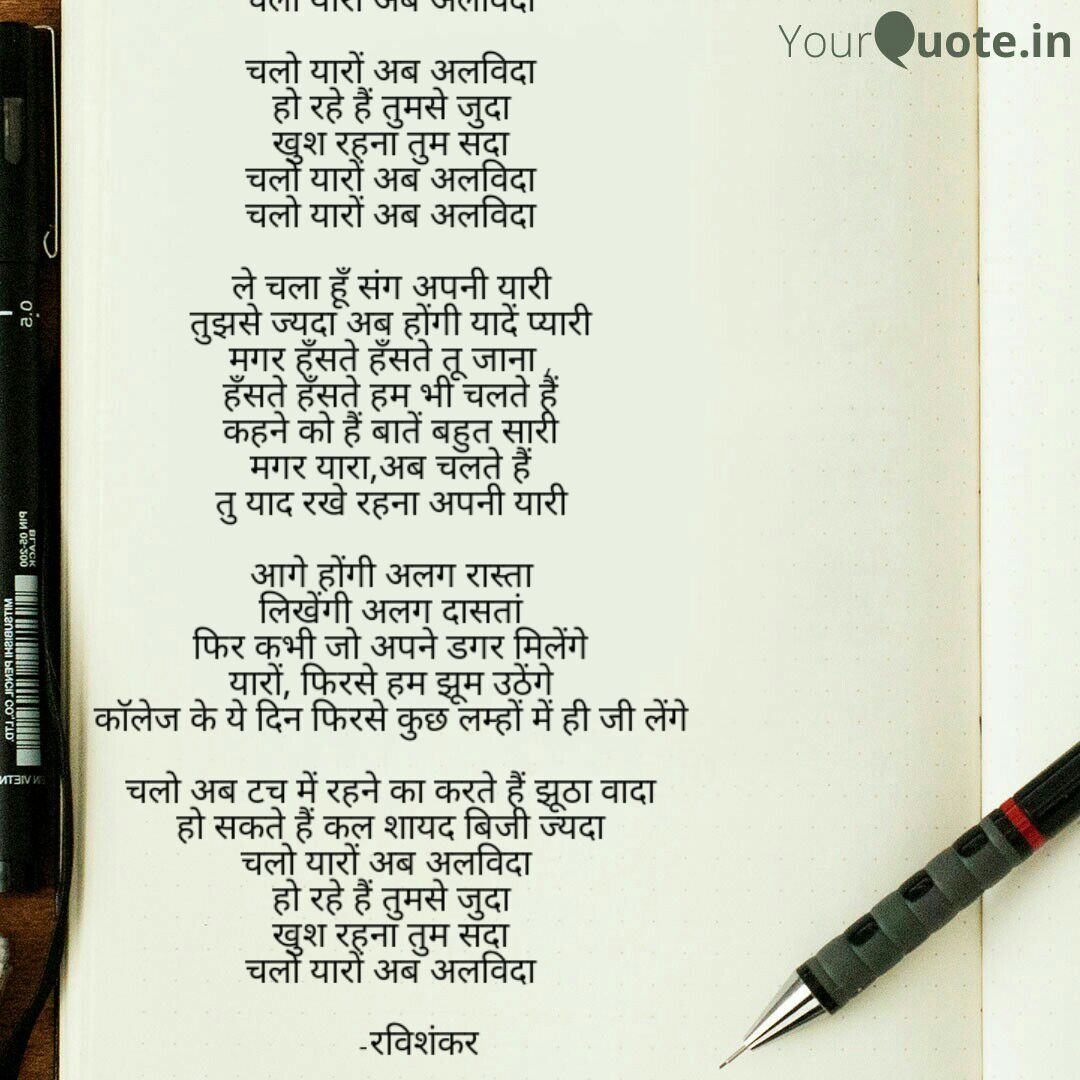 YourQuote.in
चलो यारों अब अलविदा
चलो यारों अब अलविदा
हो रहे हैं तुमसे जुदा
खुश रहना तुम सदा
चलो यारों अब अलविदा
चलो यारों अब अलविदा
ले चला हूँ संग अपनी यारी
तुझसे ज्यदा अब होंगी यादें प्यारी
मगर हँसते हँसते तू जाना ,
हँसते हँसते हम भी चलते हैं
कहने को हैं बातें बहुत सारी
मगर यारा,अब चलते हैं
तु याद रखे रहना अपनी यारी
आगे होंगी अलग रास्ता
लिखेंगी अलग दासतां
फिर कभी जो अपने डगर मिलेंगे
यारों, फिरसे हम झूम उठेंगे
कॉलेज के ये दिन फिरसे कुछ लम्हों में ही जी लेंगे
चलो अब टच में रहने का करते हैं झूठा वादा
हो सकते हैं कल शायद बिजी ज्यदा
चलो यारों अब अलविदा
हो रहे हैं तुमसे जुदा
खुश रहना तुम सदा
चलो यारों अब अलविदा
-रविशंकर
0.5
PIN 05-200
BLACK
MITSUBISHI PENCIL CO., LTD.